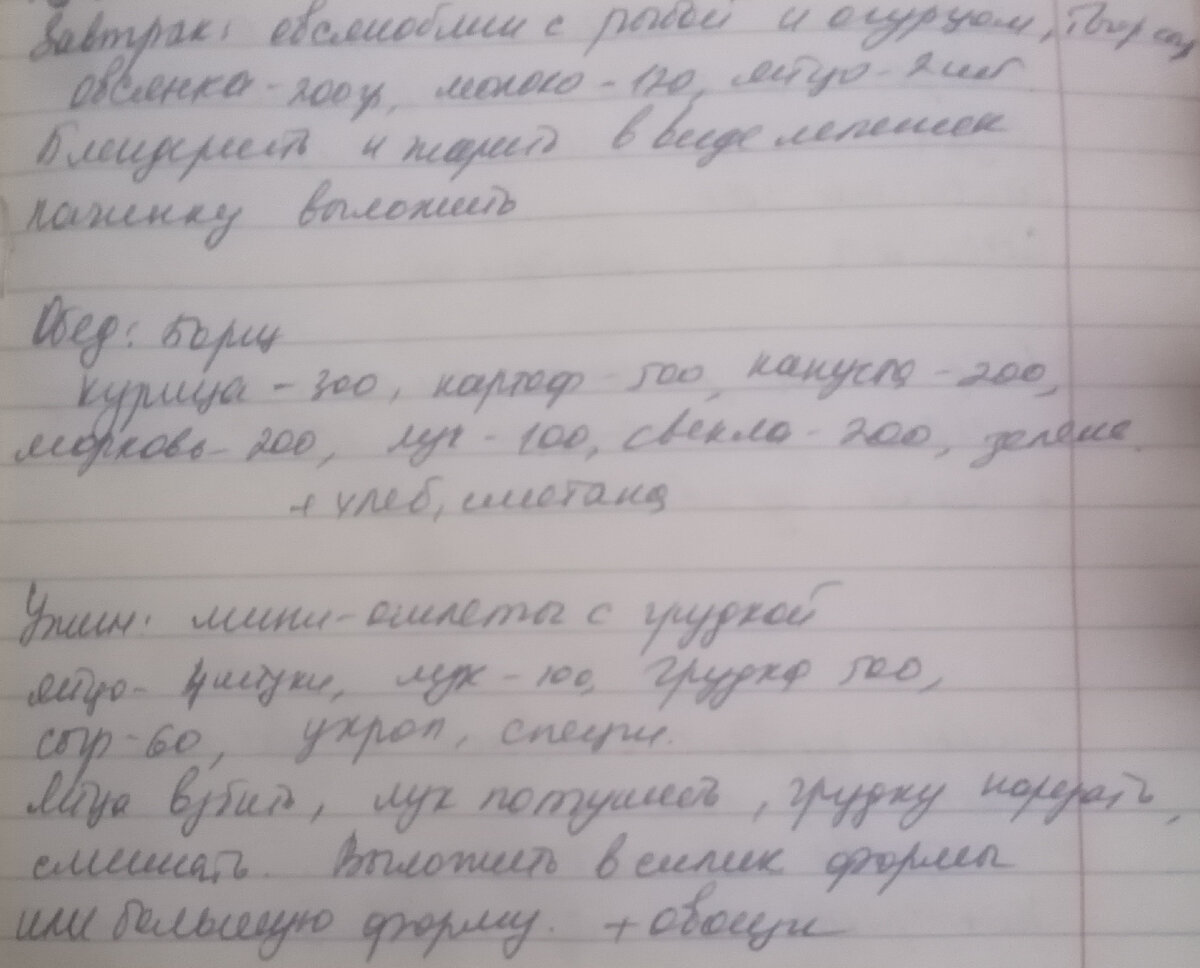 Завтрак: овсяноблин с рыбой и огурцом,
овсянка - 200гр, молоко - 120, яйцо - 2 шт
Блендерить и жарить в виде лепешек
выложить
Обед: Борщ
курица - 300, картоф - 500, капуста - 200,
морковь - 200, лук - 100, свекла - 200, зелень.
+ хлеб, сметана
Ужин: мини-омлеты с грудкой
яйцо - 4 штуки, лук - 100, грудка 500,
сыр - 60, укроп, специи.
Яйца взбить, лук потушить, грудку порезать,
смешать. Выложить в силик формы
или большую форму. + овощи